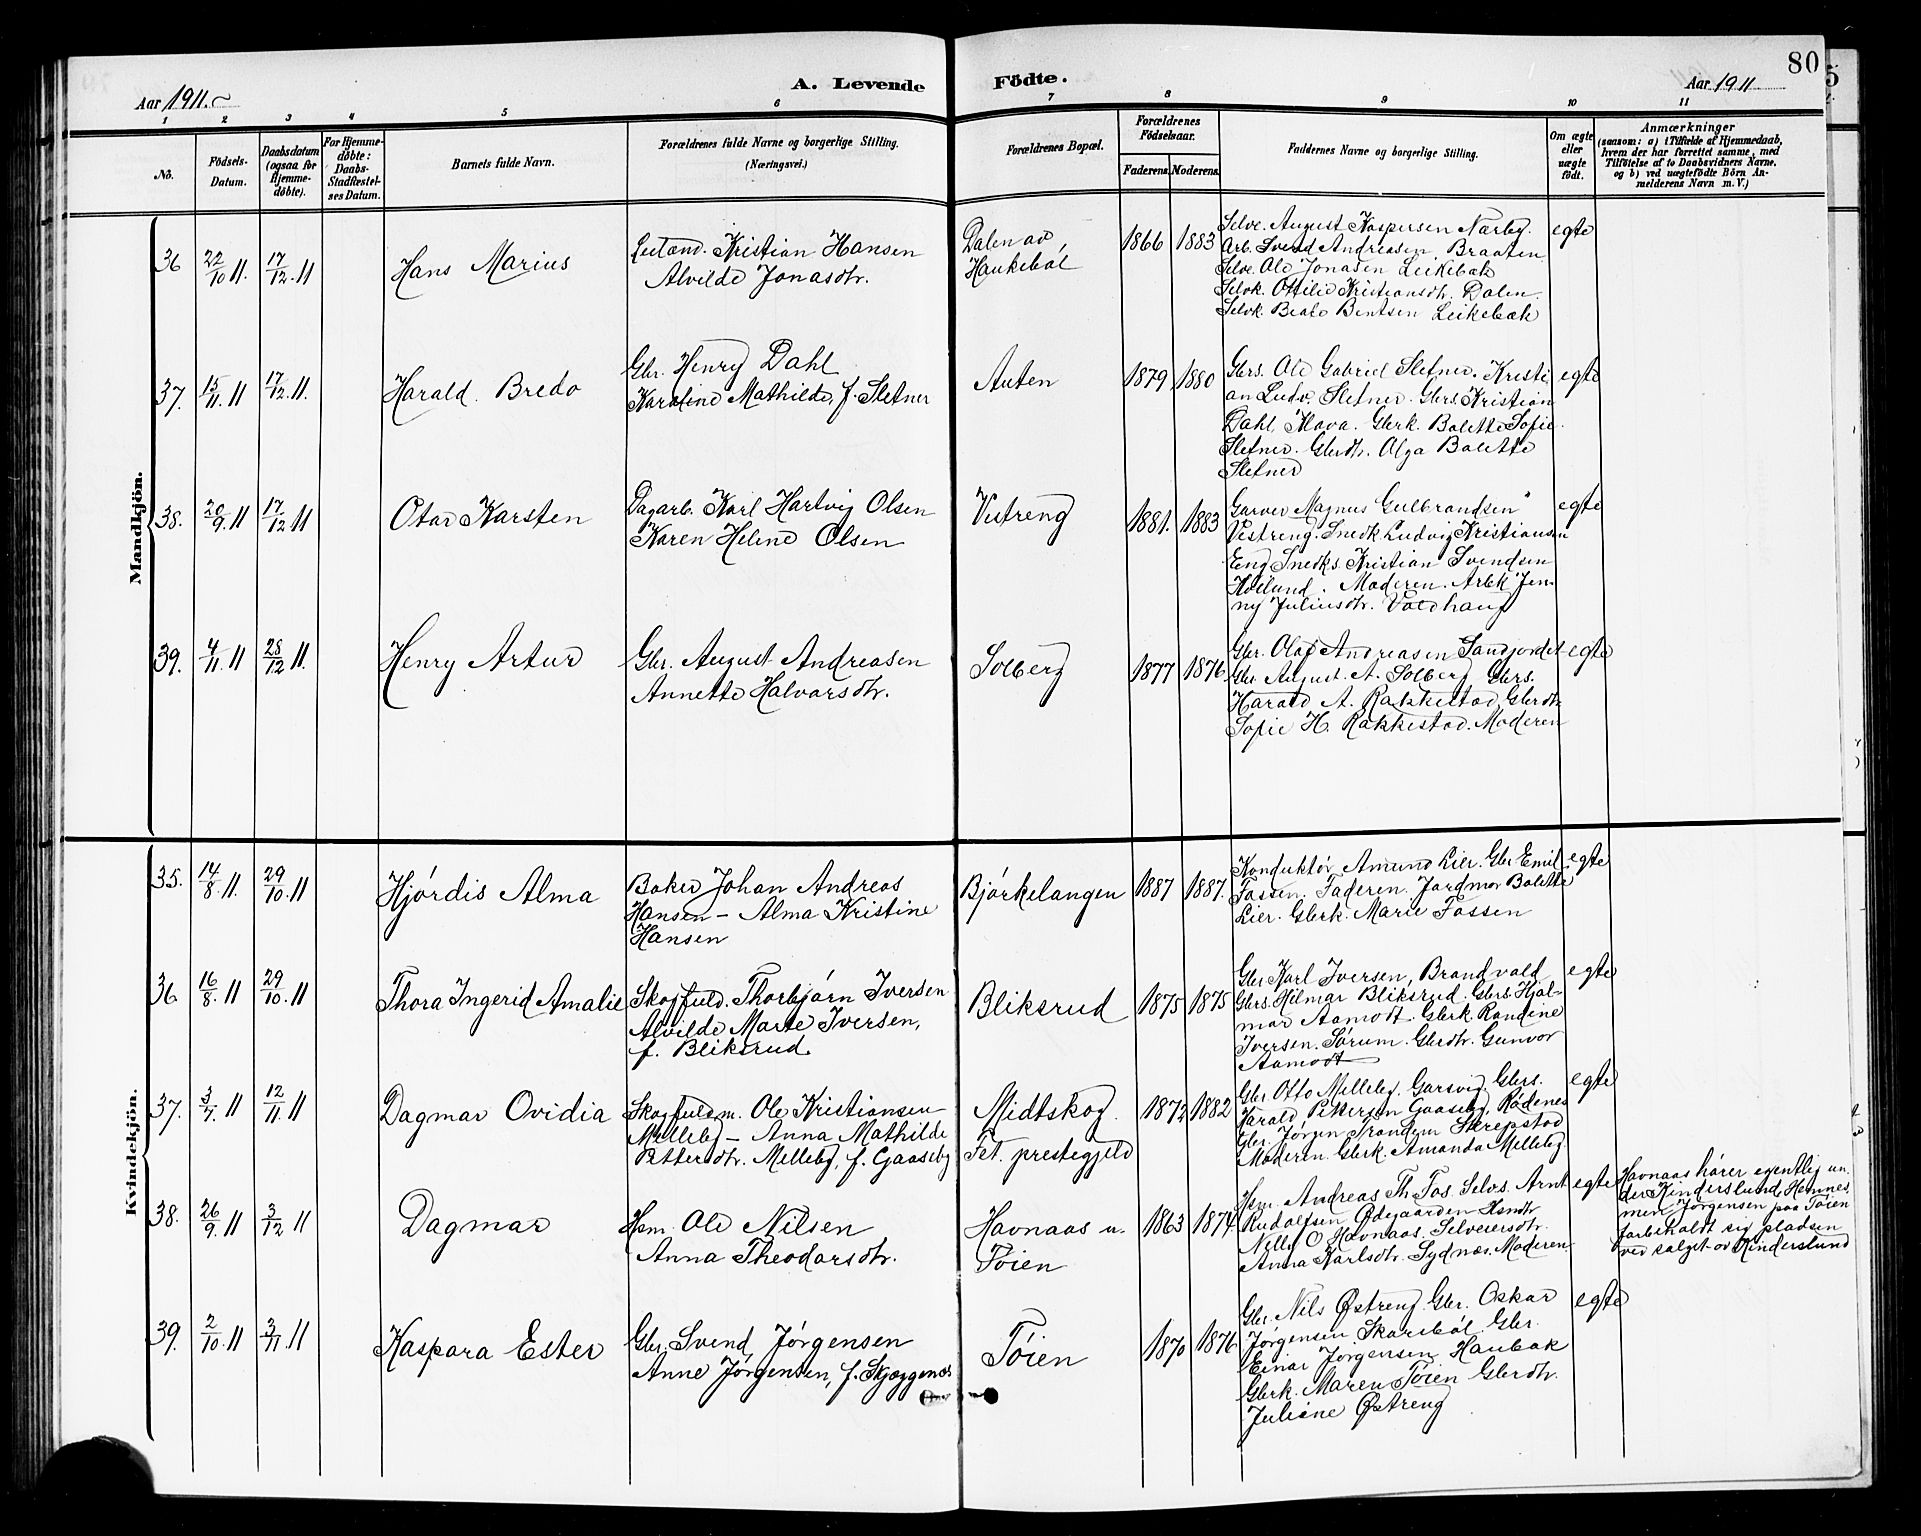 80
Aar 1911.
A. Levende Födte.
Aar 1911
1 2 3 4 5 6 7 8 9 10 11
No.
Födsels-
Datum.
Daabsdatum
(ogsaa for
Hjemme-
döbte).
For Hjemme-
döbte:
Daabs-
Stadfæstel-
ses Datum.
Barnets fulde Navn.
Forældrenes fulde Navne og borgerlige Stilling.
(Næringsvei.)
Forældrenes Bopæl.
Forældrenes
Födselsaar.
Faderens. Moderens.
Faddernes Navne og borgerlige Stilling.
Om ægte
eller
uægte
födt.
Anmærkninger
(saasom: a) i Tilfælde af Hjemmedaab,
hvem der har forrettet samme, med
Tilföielse af to Daabsvidners Navne,
og b) ved uægtefödte Börn An-
melderens Navn m. V.)
Mandkjön.
36 22/10 11. 17/12 11
Hans Marius
Kristian Hansen
Alvilde Jonasdtr.
Dalen av
Haukebøl
1866 1883
Selve. August Kaspersen Nærby.
Arb. Svend Andreasen, Braaten
Selve. Ole Jonasen Leikebæk
Selvk. Otilie Kristiansdtr. Dalen.
Selvk. Beate Bentsen Leikebæk
egte
37. 15/11 11 17/12 11.
Harald Bredo
Gbr. Henry Dahl
Karoline Mathilde, f. Sletner
Auten
1879 1880
Gbrs. Ole Gabriel Sletner. Kristi
an Ludv. Sletner. Gbrs. Kristian
Dahl, Mova. Gbrk. Bolette Sofie
Sletner. Gbrdtr. Olga Bolette
Sletner
egte
38. 20/9 11 17/12 11
Otar Karsten
Dagarb. Karl Hartvig Olsen
Karen Helene Olsen
Vestreng
1881. 1883
Garver Magnus Gulbrandsen
Vestreng. Snedk. Ludvig Kristiansen
Eng Snedks. Kristian Svendsen
Hvilund. Moderen. Arbk Jen-
ny Juliusdtr. Voldhaug
egte
39. 4/11 11 28/12 11.
Henry Artur
Gbr. August Andreasen
Annette Halvarsdtr.
Solberg
1877 1876
Gbr. Olaf Andreasen Sandjordet
Gbr. August. A. Solberg Gbrs.
Harald A. Rakkestad Gbrdtr
Sofie H. Rakkestad. Moderen
egte
Kvindekjön.
35. 14/8 11. 29/10 11
Hjørdis Alma
Baker Johan Andreas
Hansen - Alma Kristine
Hansen
Bjørkelangen
1887 1887.
Konduktør Amund Lier. Gbr Emil
Fossen. Faderen. Jordmor Bolette
Lier. Gbrk. Marie Fossen
egte
36 16/8 11 29/10 11
Thora Ingerid Amalie
Skogfuld. Thorbjørn Iversen
Alvilde Marte Iversen,
f. Bliksrud.
Bliksrud
1875 1875
Gbr Karl Iversen, Brandvold
Gbrs. Hilmar Bliksrud. Gbrs. Hjal-
mar Aamodt. Gbrk. Randine
Iversen. Sørum. Gbrdtr. Gunvor
Aamodt
egte
37. 3/7 11 12/11 11
Dagmar Ovidia
Skogfuldm. Ole Kristiansen
Melleby - Anna Mathilde
Pettersdtr. Melleby, f. Gaaseby
Midtskog.
Fet. prestegjeld
1872 1882
Gbr Otto Melleby. Garsvig. Gbrs.
Harald Pettersen Gaaseby, Rødenes
Gbr. Jørgen Trandem Skrepstad
Moderen. Gbrk. Amanda Melleby
egte
38. 26/9 11 3/12 11
Dagmar
Hsm. Ole Nilsen
Anna Theodorsdtr.
Havnaas u.
Tøien
1863 1874
Hsm. Andreas Th. Fos Selvs. Arnt
Rudolfsen Ødegaarden Hsmdtr
Nelly O Havnaas. Selveiersdtr.
Anna Karlsdtr. Sydnæs. Moderen
egte
Havnaas hører egentlig un-
der Kinderslund, Hemnes,
men Jørgensen paa Tøien
forbeholdt sig pladsen
ved salget av Kinderslund
39. 2/10 11 3/11 11
Kaspara Ester
Gbr. Svend Jørgensen
Anne Jørgensen, f. Skjæggenes
Tøien
1870 1876
Gbr. Nils Østreng. Gbr. Oskar
Jørgensen Skarsbøl. Gbr.
Einar Jørgensen Haubak
Gbrk. Maren Tøien Gbrdtr.
Juliane Østreng
egte